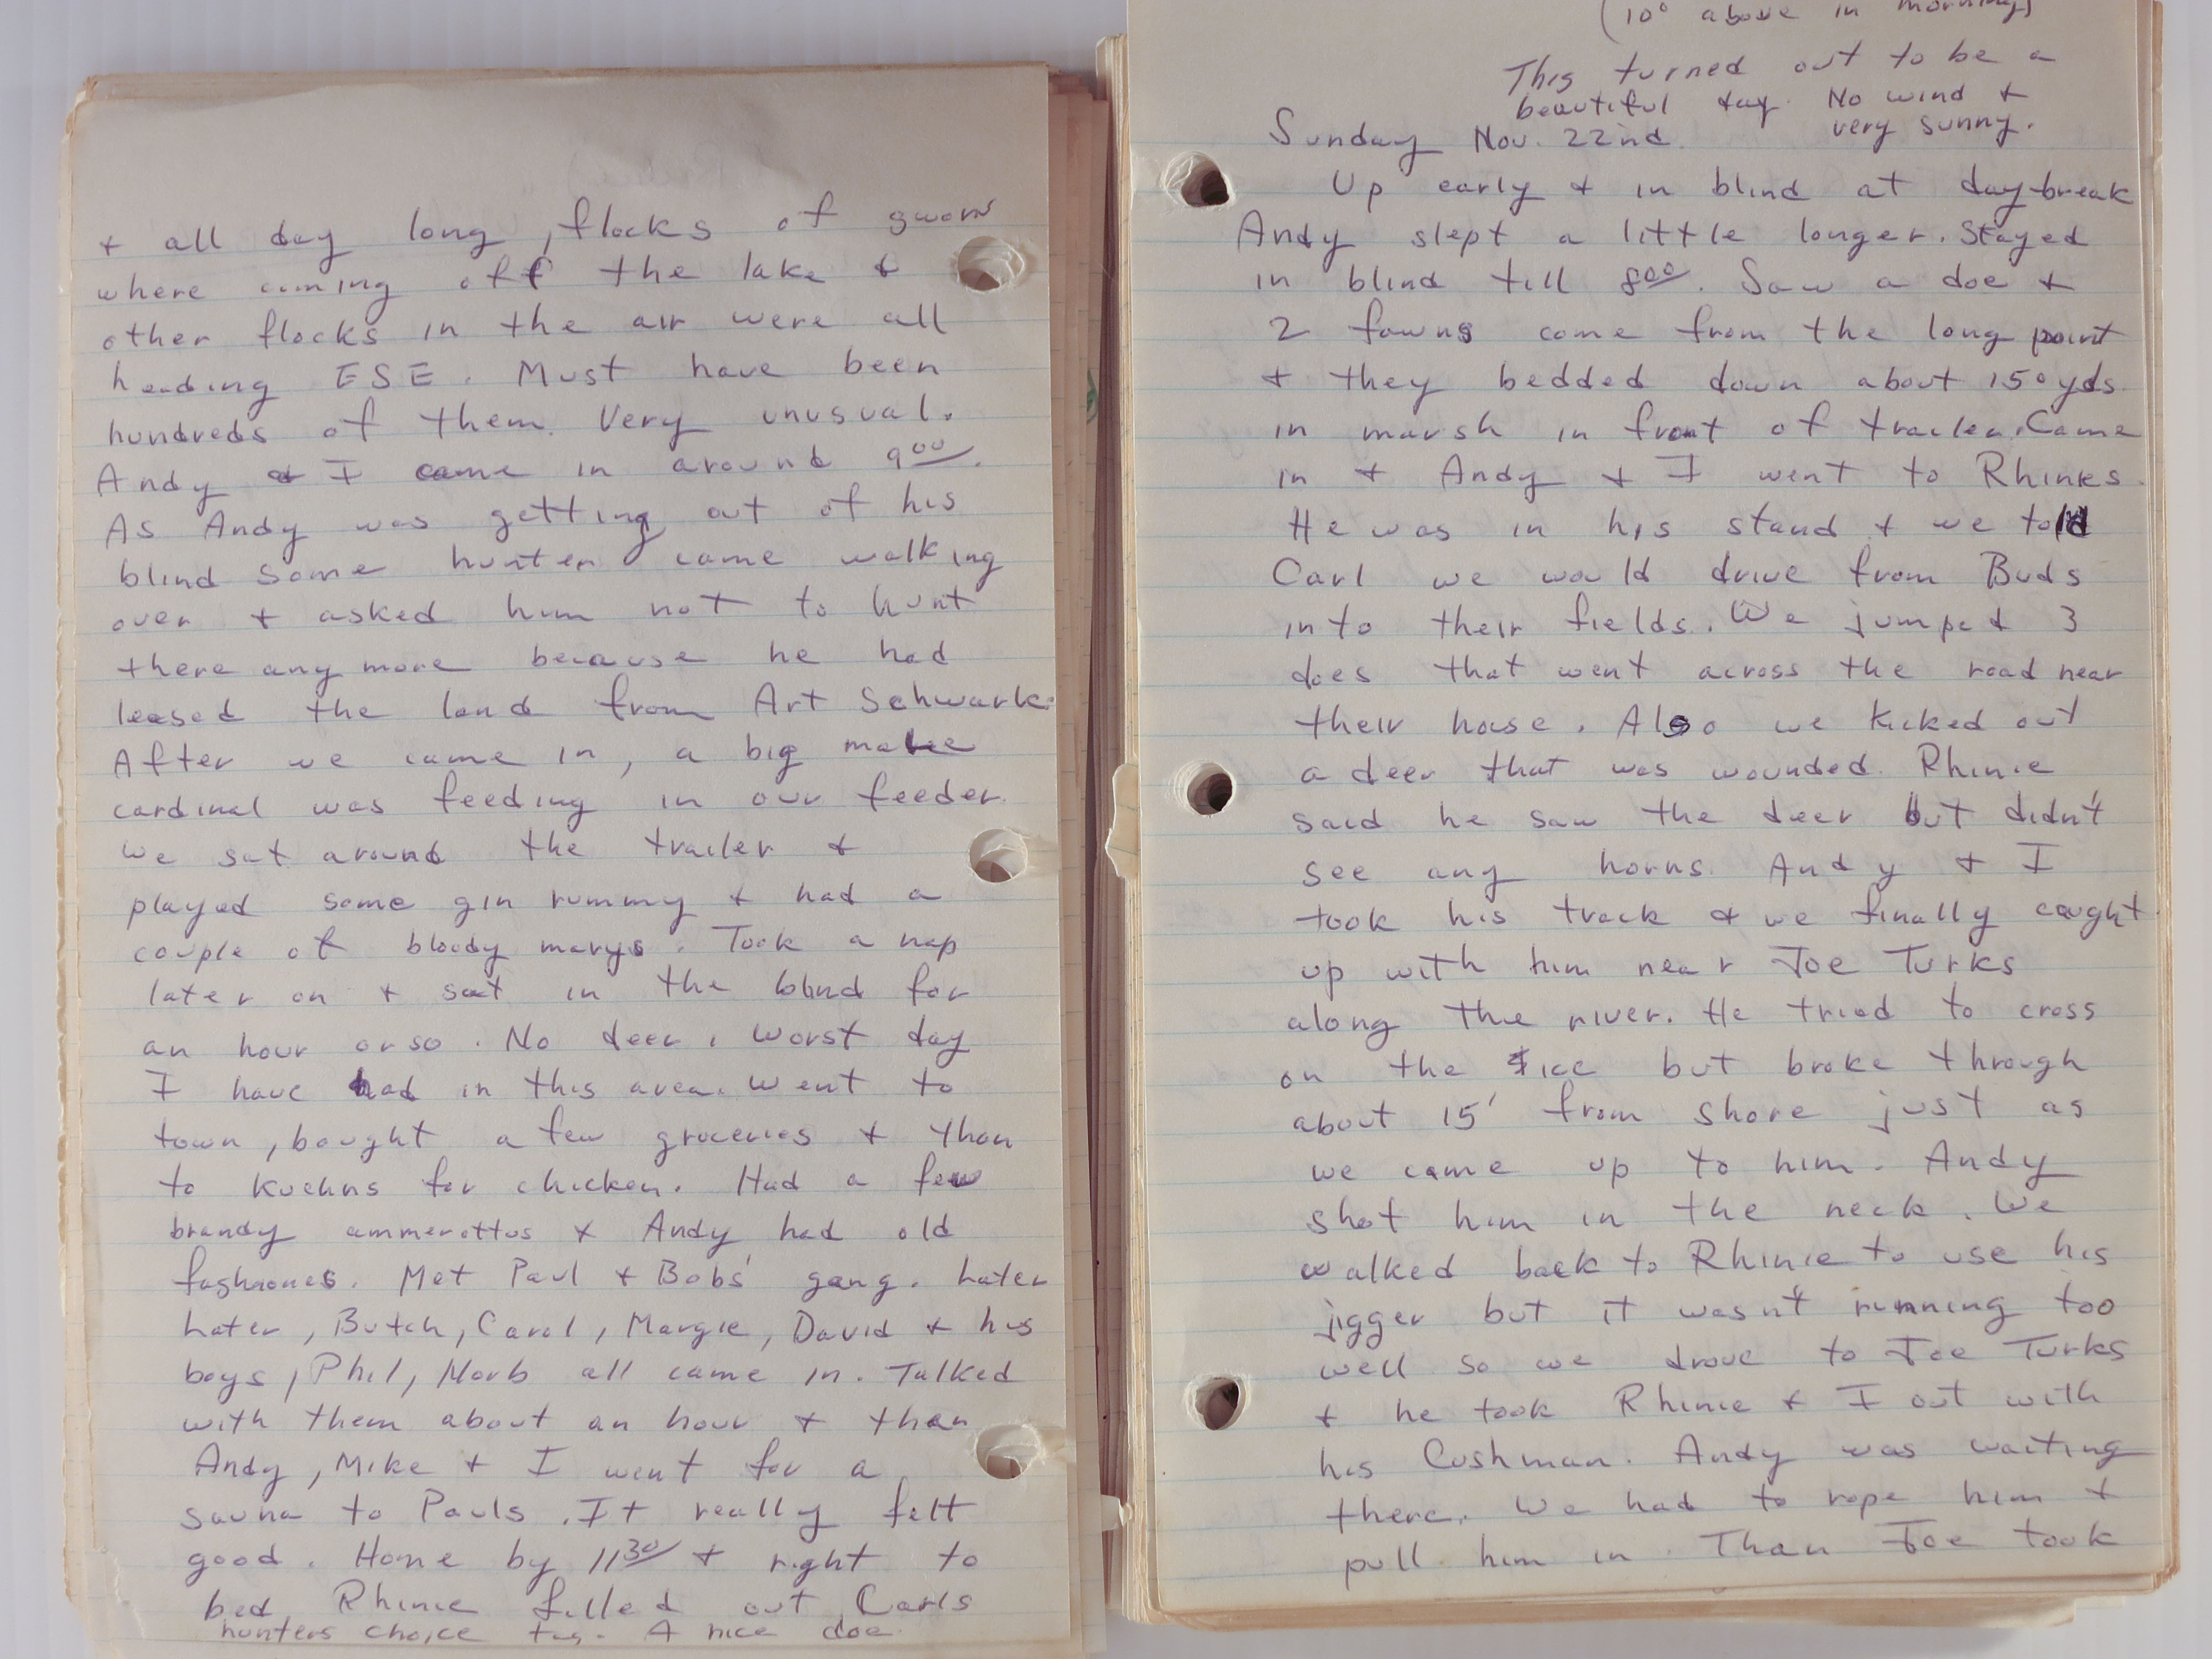 + all day long, flocks of swans
where coming off the lake +
other flocks in the air were all
heading ESE. Must have been
hundreds of them. Very unusual.
Andy + I came in around 9 00.
As Andy was getting out of his
blind some hunter came walking
over + asked him not to hunt
there any more because he had
leased the land from Art Schwark.
After we came in, a big male
cardinal was feeding in our feeder.
We sat around the trailer +
played some gin rummy + had a
couple of bloody marys. Took a nap
later on + sat in the blind for
an hour or so. No deer. Worst day
I have had in this area. Went to
town, bought a few groceries + than
to Kuehns for chicken. Had a few
brandy ammerottos + Andy had old
fashiones. Met Paul + Bobs' gang. Later
Later, Butch, Carol, Margie, David + his
boys, Phil, Norb all came in. Talked
with them about an hour + than
Andy, Mike + I went for a
sauna to Pauls. It really felt
good. Home by 11 30 + right to
bed. Rhinie filled out Carls
hunters choice tag. A nice doe.
(10° above in morning)
This turned out to be a
beautiful day. No wind +
very sunny.
Sunday Nov. 22nd.
Up early + in blind at daybreak
Andy slept a little longer. Stayed
in blind till 8 00. Saw a doe +
2 fawns come from the long point
+ they bedded down about 150 yds.
in marsh in front of trailer. Came
in + Andy + I went to Rhinies.
He was in his stand + we told
Carl we would drive from Buds
into their fields. We jumped 3
does that went across the road near
their house. Also we kicked out
a deer that was wounded. Rhinie
said he saw the deer but didn't
see any horns. Andy + I
took his track + we finally caught
up with him near Joe Turks
along the river. He tried to cross
on the ice but broke through
about 15' from shore just as
we came up to him. Andy
shot him in the neck. We
walked back to Rhinie to use his
jigger but it wasn't running too
well so we drove to Joe Turks
+ he took Rhinie + I out with
his Cushman. Andy was waiting
there. We had to rope him +
pull him in. Than Joe took